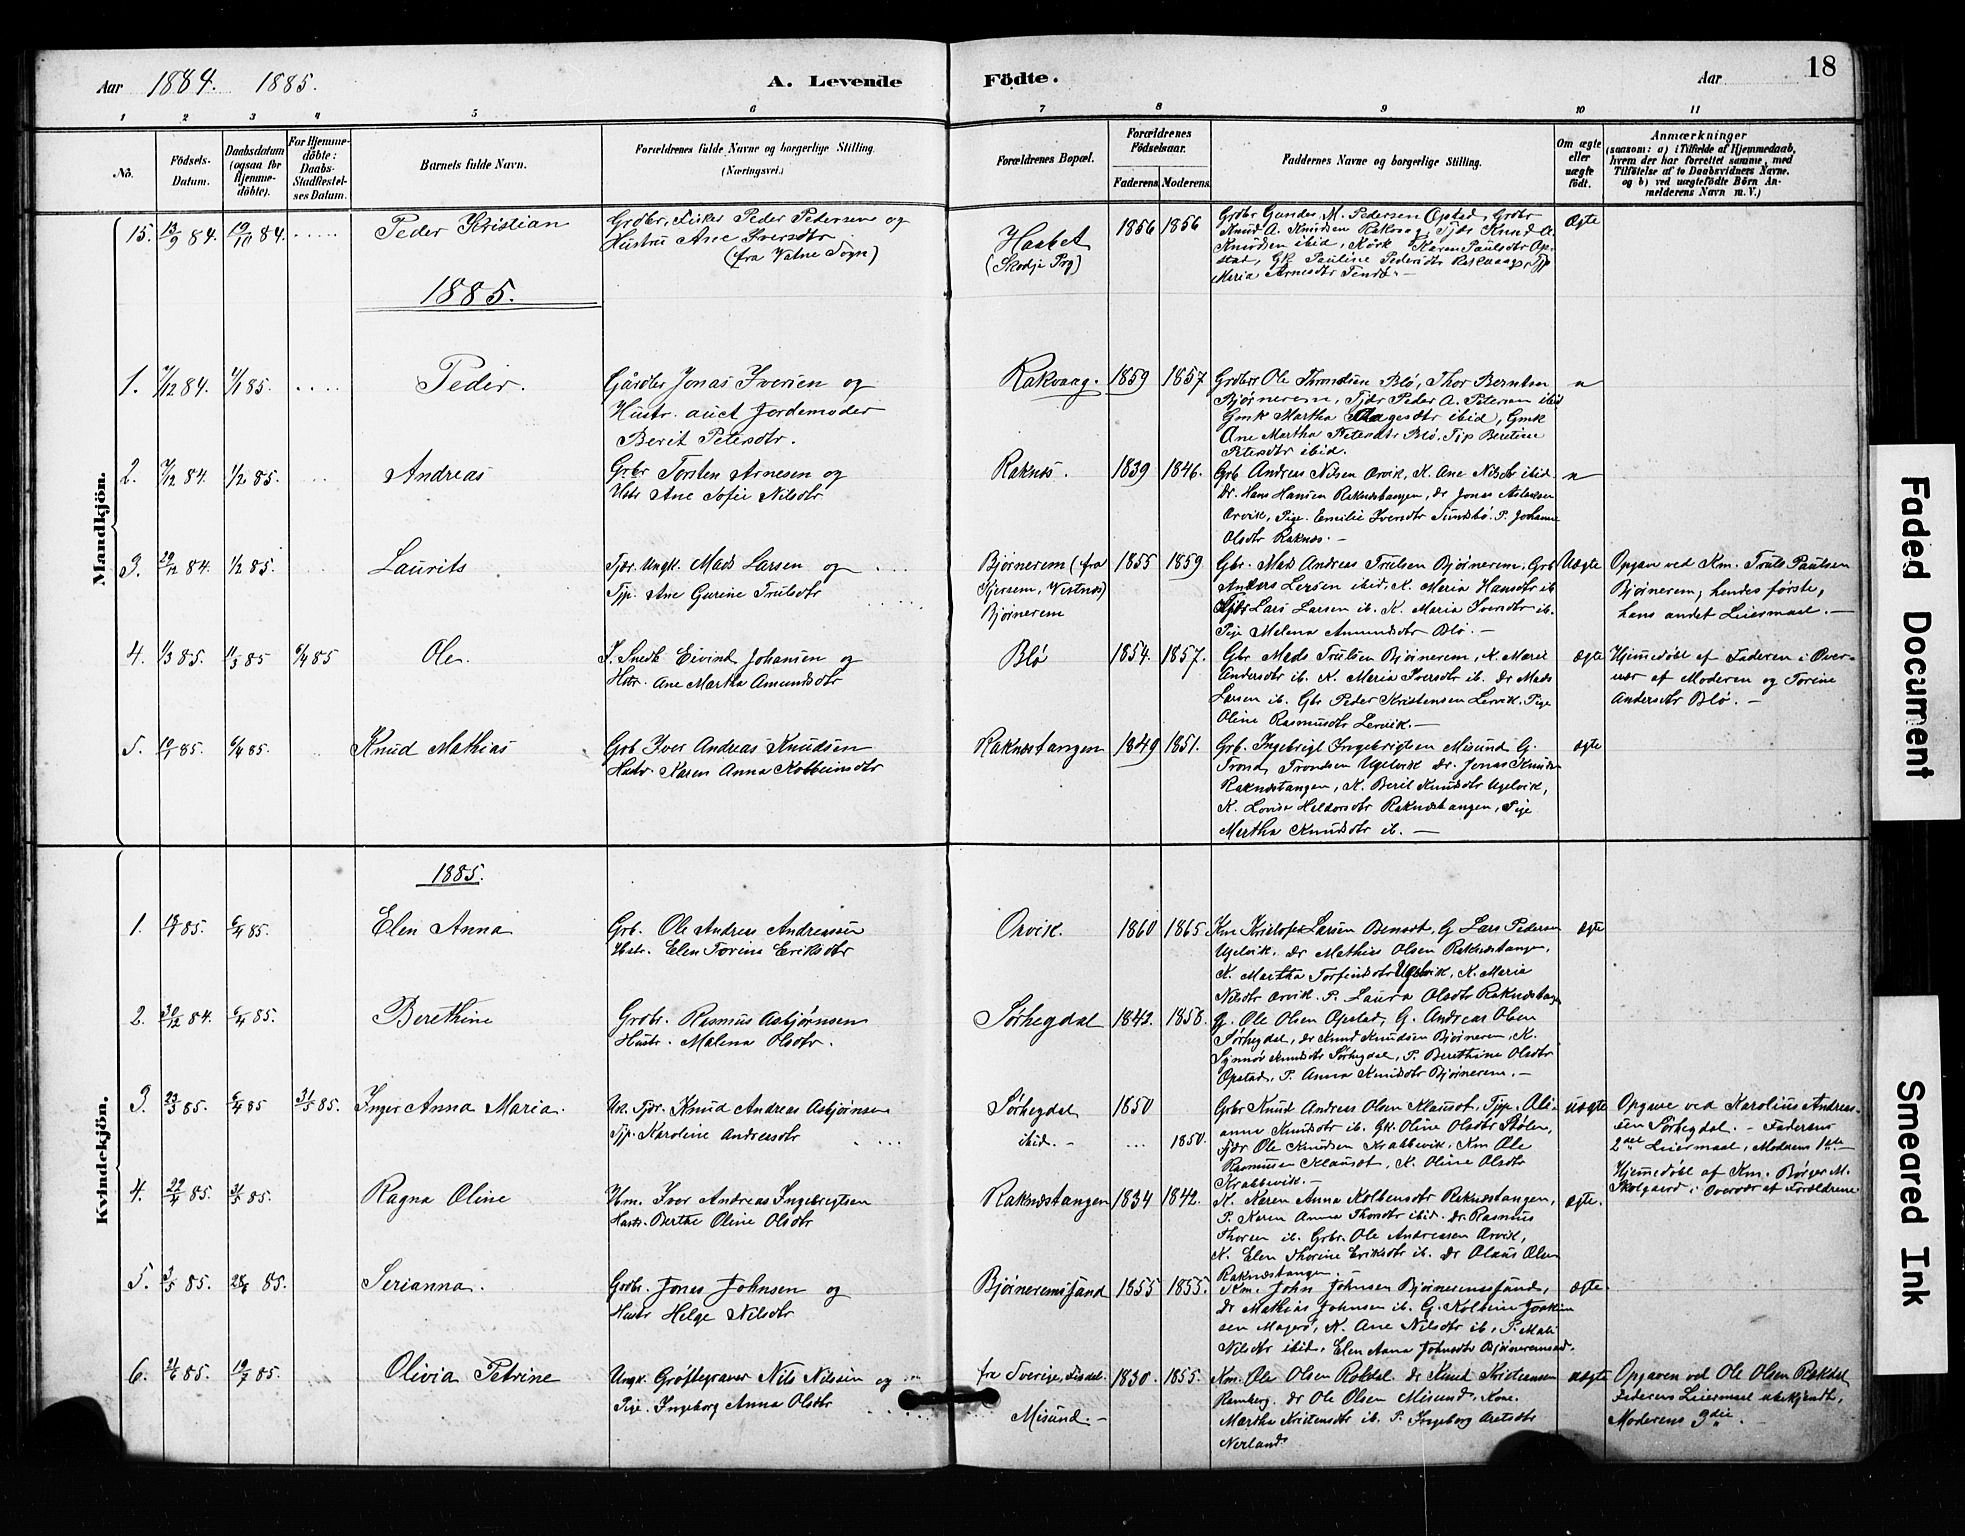 Aar 1884. 1885. A. Levende Födte. Aar 18
1 2 3 4 5 6 7 8 9 10 11
No. Födsels-Datum. Daabsdatum (ogsaa for Hjemmedöbte). For Hjemmedöbte: Daabs-Stadfæstelses Datum. Barnets fulde Navn. Forældrenes fulde Navne og borgerlige Stilling. (Næringsvei.) Forældrenes Bopæl. Forældrenes Födselsaar. Faderens. Moderens. Faddernes Navne og borgerlige Stilling. Om ægte eller uægte födt. Anmærkninger (saasom: a) i Tilfælde af Hjemmedaab, hvem der har forrettet samme, med Tilföielse af to Daabsvidners Navne, og b) ved uægtefödte Börn Anmelderens Navn m. V.)
Mandkjön.
15. 13/9 84. 19/10 84. Peder Kristian
Grdbr. Fisker Peder Pedersen og
Hustru Ane Iversdtr
(fra Vatne Sogn)
Haabet
(Skodje Prg)
1856 1856
Grdbr Gunder M. Pedersen Opstad, Grdbr
Knud A. Knudsen Rakvaag, Tjdr Knud A.
Knudsen ibid, Kårk Karen Paulsdtr Op-
stad, Gk Pauline Pedersdtr Rakvaag, Tjp
Maria Arnesdtr
Ægte
1885.
1. 7/12 84. 4/1 85. Peder.
Gårdbr Jonas Iversen og
Hustr. auct Jordemoder
Berit Petersdtr.
Rakvaag. 1859 1857
Grdbr Ole Throndsen Blø, Thor Berntsen
Bjørnerem, Tjdr Peder A. Petersen ibid
Gmk Martha Aagesdtr ibid, Gmk
Ane Martha Petersdtr Blø, Tjp Beretine
Petersdtr ibid.
"
2. 7/12 84. 1/2 85. Andreas
Grbr Torsten Arnesen og
Hstr Ane Sofie Nilsdtr
Raknes. 1839 1846.
Grb Andreas Nilsen Orvik, K. Ane Nilsdtr ibid.
Dr. Hans Hansen Raknestangen, dr Jonas
Orvik, Pige Emilie Iversdtr Sundsbö. P. Johanne
Olsdtr Raknes. —
"
3. 29/12 84. 1/2 85. Laurits
Tjdr. Ungk. Mads Larsen og
Tjp. Ane Gurine Trulsdtr
Bjørnerem (fra
Gjersem, Vestnes)
Bjørnerem
1855 1859
Gbr. Mads Andreas Trulsen Bjørnerem, Grb
Anders Larsen ibid. K. Maria Hansdtr ib
Tjdr Lars Larsen ib. K. Maria Iversdtr ib.
Pige Malena Amundsdtr Blø. —
Uægte
Opgav ved Km. Truls Paulsen
Bjørnerem, hendes første,
hans andet Leiermaal. —
4. 1/3 85. 11/3 85 6/4 85 Ole.
I. Snedk Eivind Johansen og
Hstr. Ane Martha Amundsdtr
Blø 1854. 1857.
Gbr. Mads Trulsen Bjørnerem, K. Marit
Andersdtr ib. K. Maria Iversdtr ib. dr Mads
Larsen ib. Gbr Peder Kristensen Lervik. Pige
Oline Rasmusdtr Lervik. —
ægte
Hjemmedøbt af Faderen i Over-
vær af Moderen og Torine
Andersdtr Blø. —
5. 19/1 85. 6/4 85 Knud Mathias
Grb Iver Andreas Knudsen
Hustr. Karen Anna Kolbeinsdtr
Raknestangen 1849 1851.
Grb. Ingebrigt Ingebrigtsen Misund G.
Trond Trondsen Ugelvik dr. Jonas Knudsen
Raknestangen, K. Beril Knudsdtr Ugelvik,
K. Lovise Heldorsdtr Raknestangen, Pige
Martha Knudsdtr ib. —
ægte
Kvindekjön.
1885.
1. 18/1 85. 6/4 85. Elen Anna
Grb. Ole Andreas Andreassen
Hstr. Elen Torine Eriksdtr
Orvik. 1860 1865
Km Kristofer Larsen Bensæt, G Lars Pedersen
Ugelvik, dr Mathias Olsen Raknestangen,
K. Martha Torfindsdtr Ugelvik, K. Maria
Nilsdtr Orvik. P. Laura Olsdtr Raknestangen
ægte
2. 30/12 84. 6/4 85. Berethine
Grdbr. Rasmus Asbjørnsen
Hustr. Malena Olsdtr.
Sørhegdal 1842. 1856.
G. Ole Olsen Opstad, G. Andreas Olsen
Sørhegdal, dr Knud Knudsen Bjørnerem, K.
Synnøv Knudsdtr Sørhegdal, P. Berethine Olsdtr
Opstad, P. Anna Knudsdtr Bjørnerem. —
3. 23/3 85. 6/4 85 31/5 85. Inger Anna Maria.
Uk. Tjdr. Knud Andreas Asbjørnsen
Tjp. Karoline Andreasdtr
Sørhegdal
ibid. —
1850 1850.
Grbr Knud Andreas Olsen Klauset, Tjp. Oli-
anne Knudsdtr ib. Gk. Oline Olsdtr Stølen,
Tjdr Ole Knudsen Krabbevik, Km Ole
Rasmussen Klauset, K. Oline Olsdtr
Krabbevik. —
uægte
Opgave ved Karolius Andreas-
sen Sørhegdal. — Faderens
2det Leiermaal, Moderens 1ste
Hjemmedøbt af Km. Børger M.
Skolgaard i Overvær af Forældrene
4. 22/4 85. 31/5 85. Ragna Oline
Hm. Iver Andreas Ingebrigtsen
Hustr. Berthe Oline Olsdtr
Raknestangen 1834 1842.
K. Karen Anna Kolbensdtr Raknestangen,
P. Karen Anna Thorsdtr ibid. dr. Rasmus
Thorsen ib. Grbr. Ole Andreassen Orvik,
K. Elen Thorine Eriksdtr ib. dr Olaus Olsen
Raknestangen. —
ægte.
5. 3/5 85. 28/6 85. Serianna.
Grdbr. Jonas Johnsen og
Hustr Helge Nilsdtr
Bjørneremssund 1855 1855.
Km. John Johnsen Bjørneremssund,
dr Mathias Johnsen ib. G. Kolbein Joakim
sen Magerø, K. Ane Nilsdtr ib, P. Mali
Nilsdtr ibid, Elen Anna Johnsdtr Bjørneremssd. —
ægte
6. 21/6 85. 19/7 85. Olivia Petrine
Ungk. Grøftegraver Nils Nilsen og
Pige. Ingeborg Anna Olsdtr
fra Sverige,
Misund. —
1830. 1855.
Km. Ole Olsen Rokdal dr Knud Kristiansen
Ramberg. dr Ole Olsen Misund, Kone
Marthe Kristensdtr ib. P. Ingeborg Aretsdtr
Nerland
uægte
Opgaven ved Ole Olsen Rakdal
Faderens Leiermaal ubekjendt,
Moderens 3die.
Faded Document
Smeared Ink